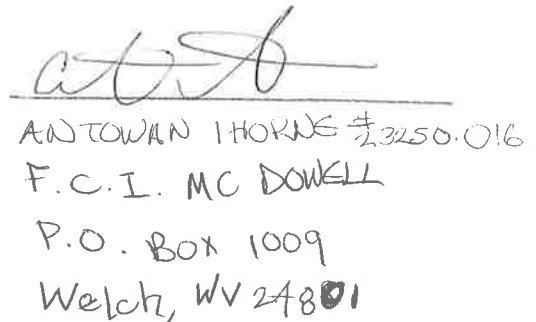 ANTOWAN THORNE #23250-016
F.C.I. MC DOWELL
P.O. BOX 1009
Welch, WV 24801